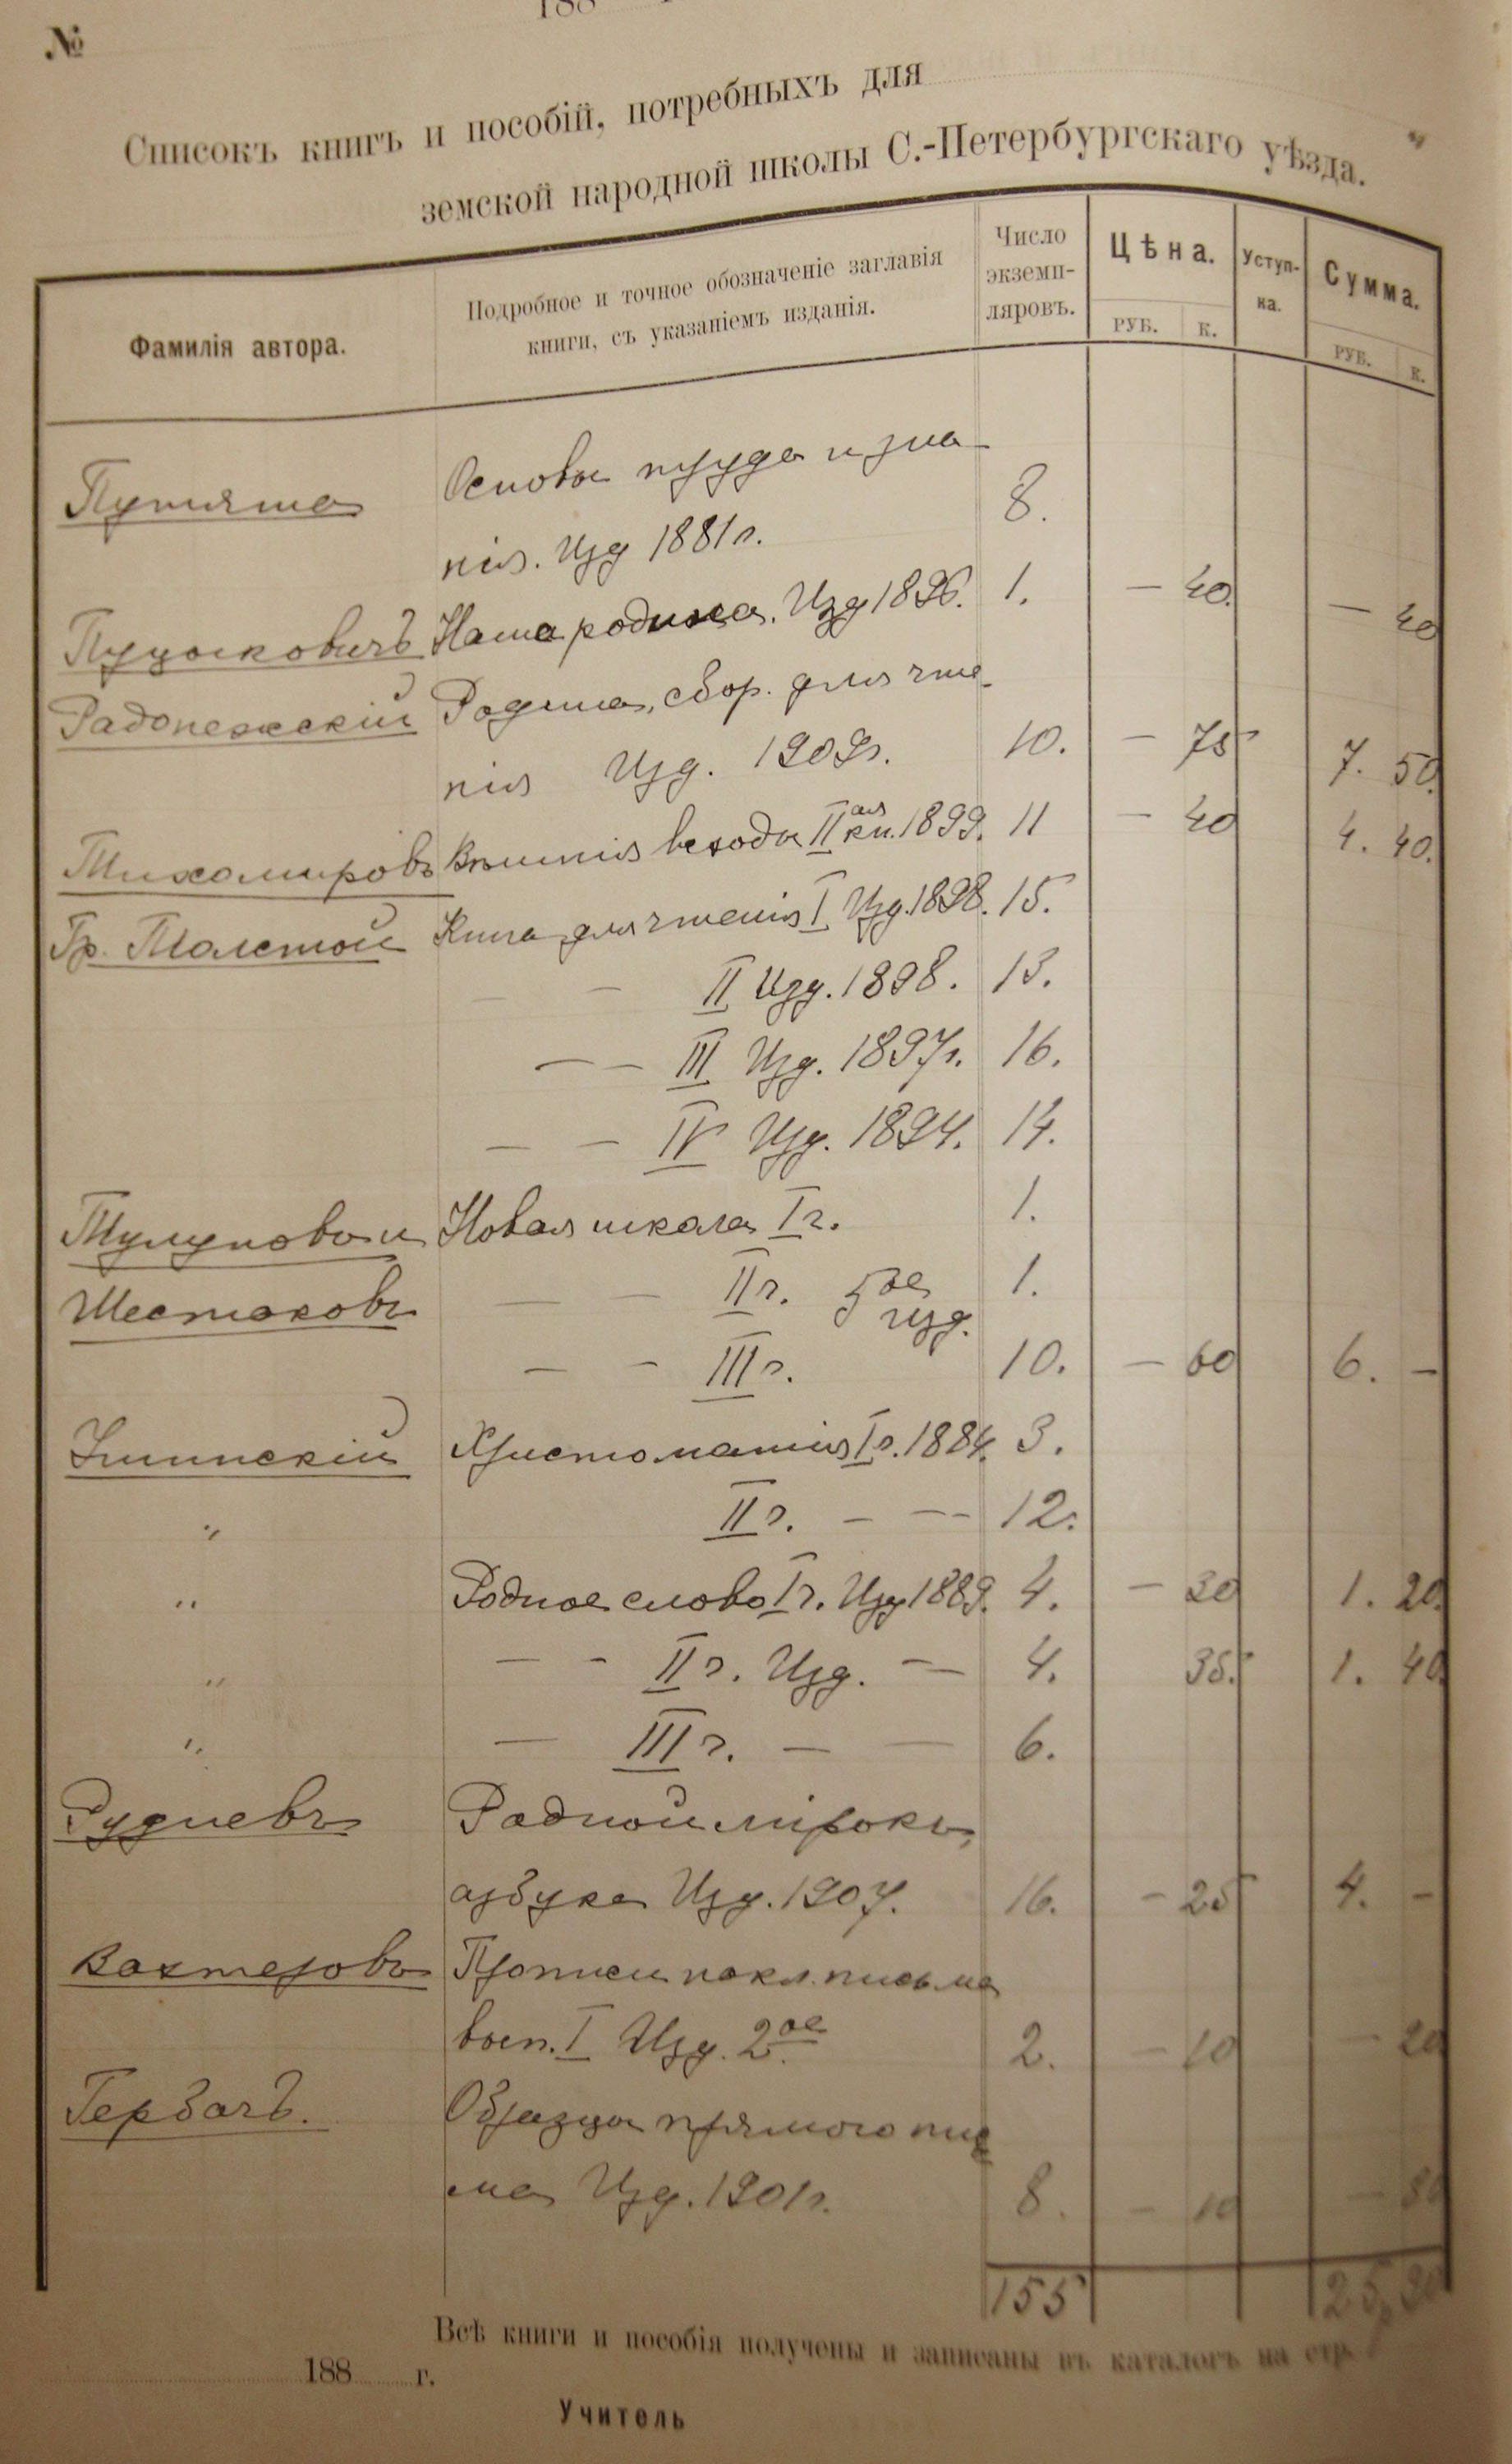 188
№
Списокъ книгъ и пособій, потребныхъ для
земской народной школы С.-Петербургскаго уѣзда.
Фамилія автора.
Подробное и точное обозначеніе заглавія
книги, съ указаніемъ изданія.
Число
экземп-
ляровъ.
Цѣна.
РУБ. К.
Уступ-
ка.
Сумма.
РУБ. К.
Путята Основы труда и зна-
нія. Изд 1881 г. 8.
Пуцыковичъ Наша родина. Изд 1896. 1. — 40. — 40
Радонежскій Родина, сбор. для чте-
нія Изд. 1909 г. 10. — 75 7. 50.
Тихомировъ Вешніе всходы II ая кн. 1899. 11 — 40 4. 40.
Гр. Толстой Книга для чтенія I Изд. 1898. 15.
— — II Изд. 1898. 13.
— — III Изд. 1897 г. 16.
— — IV Изд. 1894. 14.
Тулуповъ и Новая школа I г. 1.
Шестаковъ — — II г. 5 ое изд. 1.
— — III г. 10. — 60 6. —
Ушинскій Христоматія I г. 1884. 3.
" II г. — — 12.
" Родное слово I г. Изд 1889. 4. — 30 1. 20.
" — — II г. Изд. — 4. 35. 1. 40.
" — III г. — — 6.
Рудневъ Родной мірокъ,
азбука Изд. 1907. 16. — 25 4. —
Вахтеровъ Прописи накл. письма
вып. I Изд. 2 ое 2. — 10 — 20
Гербачъ. Образцы прямого пис
ма Изд. 1901 г. 8. — 10 — 80
155 25 90
Всѣ книги и пособія получены и записаны въ каталогъ на стр.
188 г.
Учитель